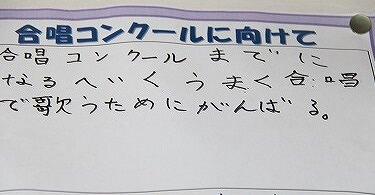 合唱コンクールに向けて
合唱コンクールまでに
なるべくうまく合唱
で歌うためにがんばる。